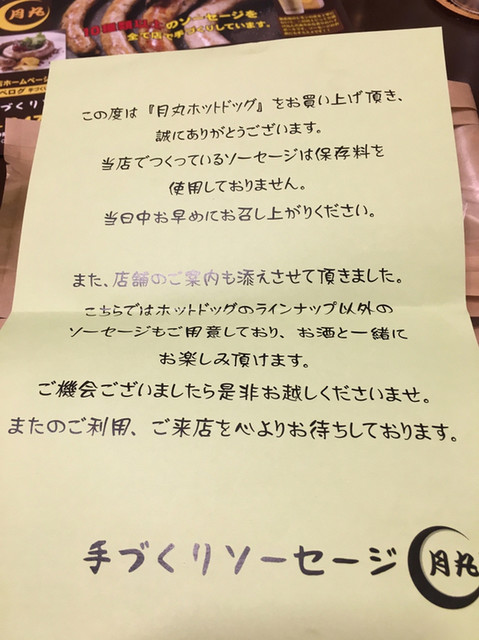 月丸
10種類以上のソーセージを
全て店で手づくりしています。
この度は『月丸ホットドッグ』をお買い上げ頂き、
誠にありがとうございます。
当店でつくっているソーセージは保存料を
使用しておりません。
当日中お早めにお召し上がりください。
また、店舗のご案内も添えさせて頂きました。
こちらではホットドッグのラインナップ以外の
ソーセージもご用意しており、お酒と一緒に
お楽しみ頂けます。
ご機会ございましたら是非お越しくださいませ。
またのご利用、ご来店を心よりお待ちしております。
手づくりソーセージ 月丸